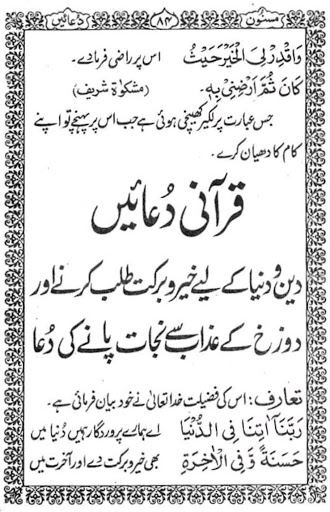 مسنون ۸۴ دعائیں
وَاقْدِرْ لِیَ الْخَیْرَ حَیْثُ اس پر راضی فرما دے۔
کَانَ ثُمَّ اَرْضِنِیْ بِہٖ۔ (مشکوٰۃ شریف)
جس عبارت پر لکیر کھینچی ہوئی ہے جب اس پر پہنچے تو اپنے
کام کا دھیان کرے۔
قرآنی دُعائیں
دین و دنیا کے لیے خیر و برکت طلب کرنے اور
دوزخ کے عذاب سے نجات پانے کی دُعا
تعارف: اس کی فضیلت خدا تعالیٰ نے خود بیان فرمائی ہے۔
رَبَّنَا اٰتِنَا فِی الدُّنْیَا اے ہمارے پروردگار ہمیں دُنیا میں
حَسَنَةً وَّ فِی الْاٰخِرَةِ بھی خیر و برکت دے اور آخرت میں